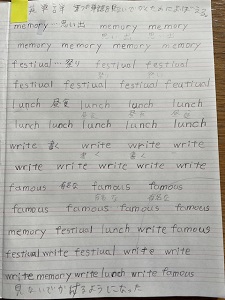 英単語
memory … 思い出 memory memory
memory memory memory memory
festival … 祭り festival festival
festival festival festival festival
lunch 昼食 lunch lunch lunch
lunch lunch lunch lunch lunch
write 書く write write write
write write write write write
famous 有名な famous famous
famous famous famous famous
memory festival lunch write famous
festival write festival write write
write memory write lunch write famous
見ないでかけるようになった